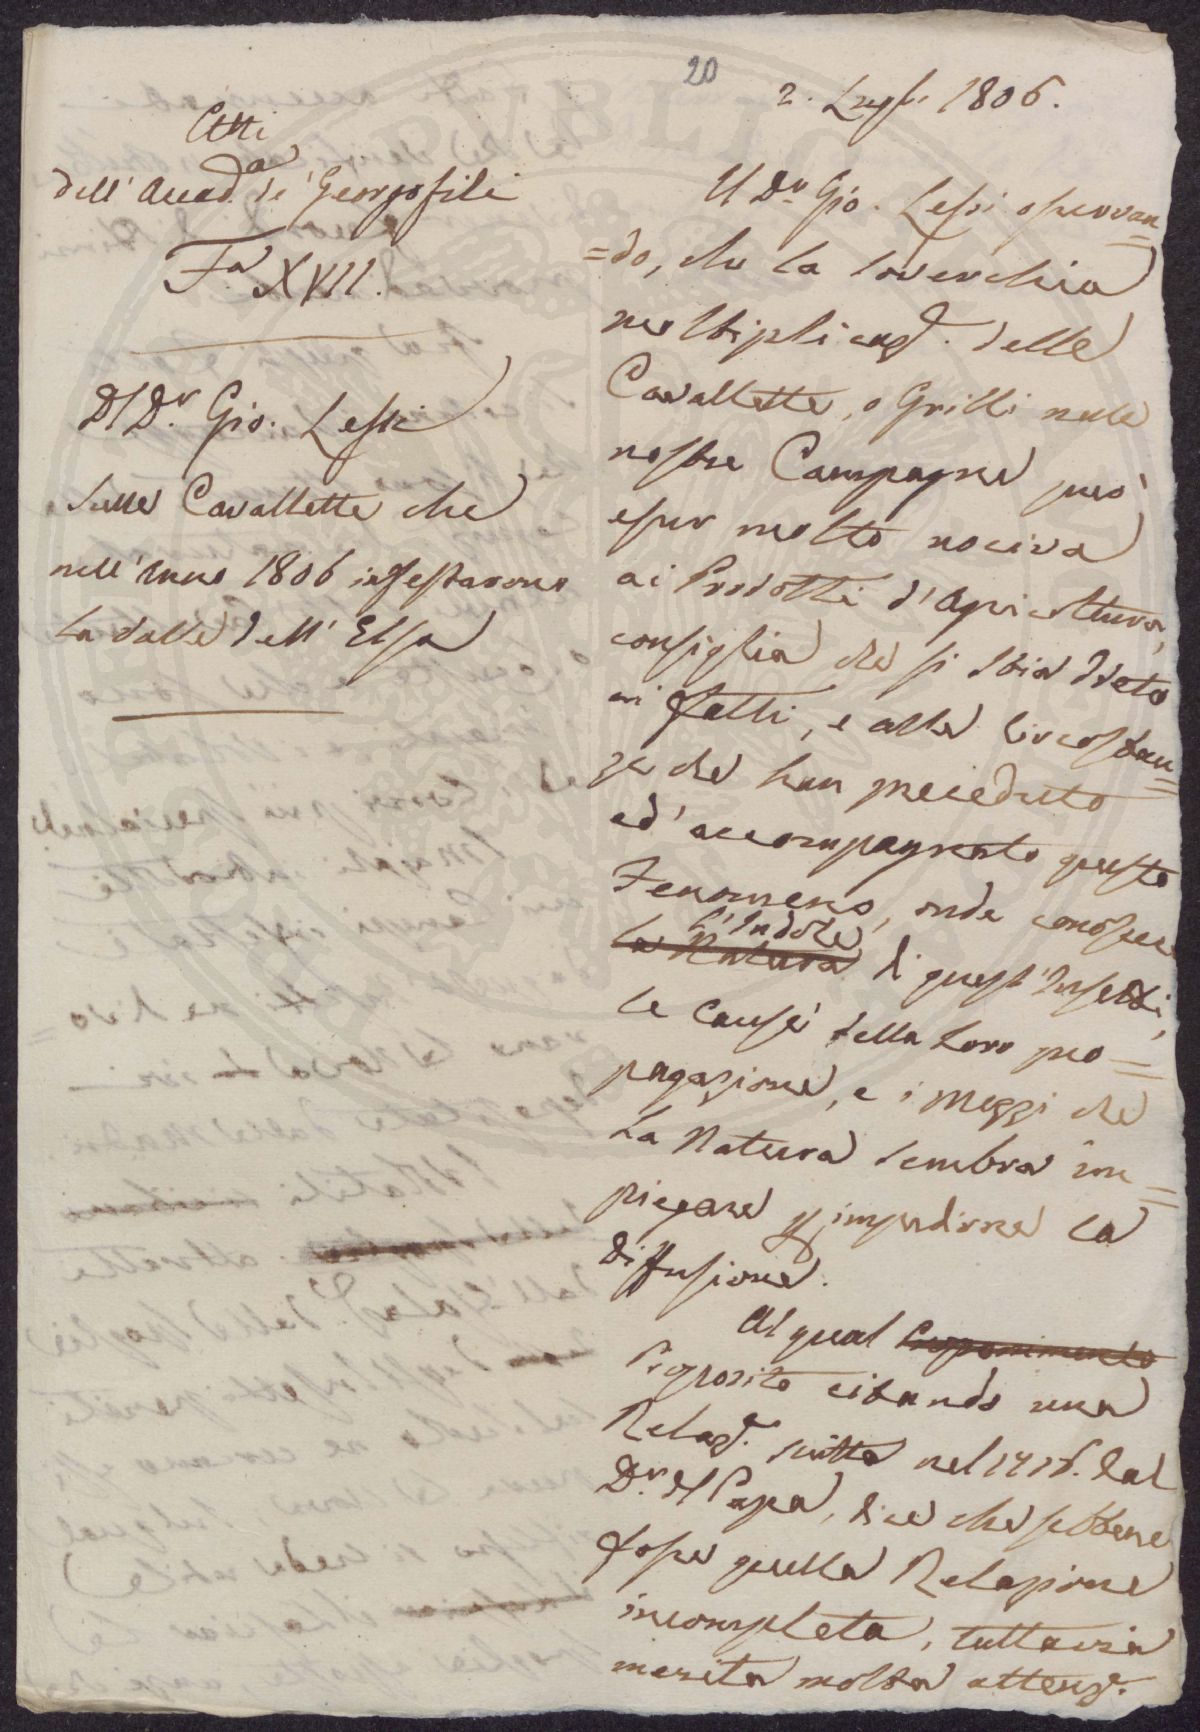 20
2. Lugl. 1806.
Atti
dell'Accad.a de' Georgofili
F.a XVII.
Del D.r Gio. Lessi
sulle Cavallette che
nell'Anno 1806 infestarono
la Valle dell'Elsa
Il D.r Gio. Lessi osservan=
=do, che la soverchia
moltiplicaz.e delle
Cavallette, o Grilli nelle
nostre Campagne può
esser molto nociva
ai Prodotti d'Agricoltura,
consiglia che si stia dreto
ai fatti, e alle circostan=
ze che han preceduto
ed'accompagnato questo
Fenomeno, onde conoscere
l'Indole
la Natura di quest'Insetti,
le cause della loro pro=
pagazione, e i mezzi che
la Natura sembra im=
piegare p impedirne la
diffusione.
Al qual
Proposito citando una
Relaz.e scritta nel 1716. dal
D.r del Papa, dice che sebbene
fosse quella Relazione
incompleta, tuttavia
merita molta attenz.e